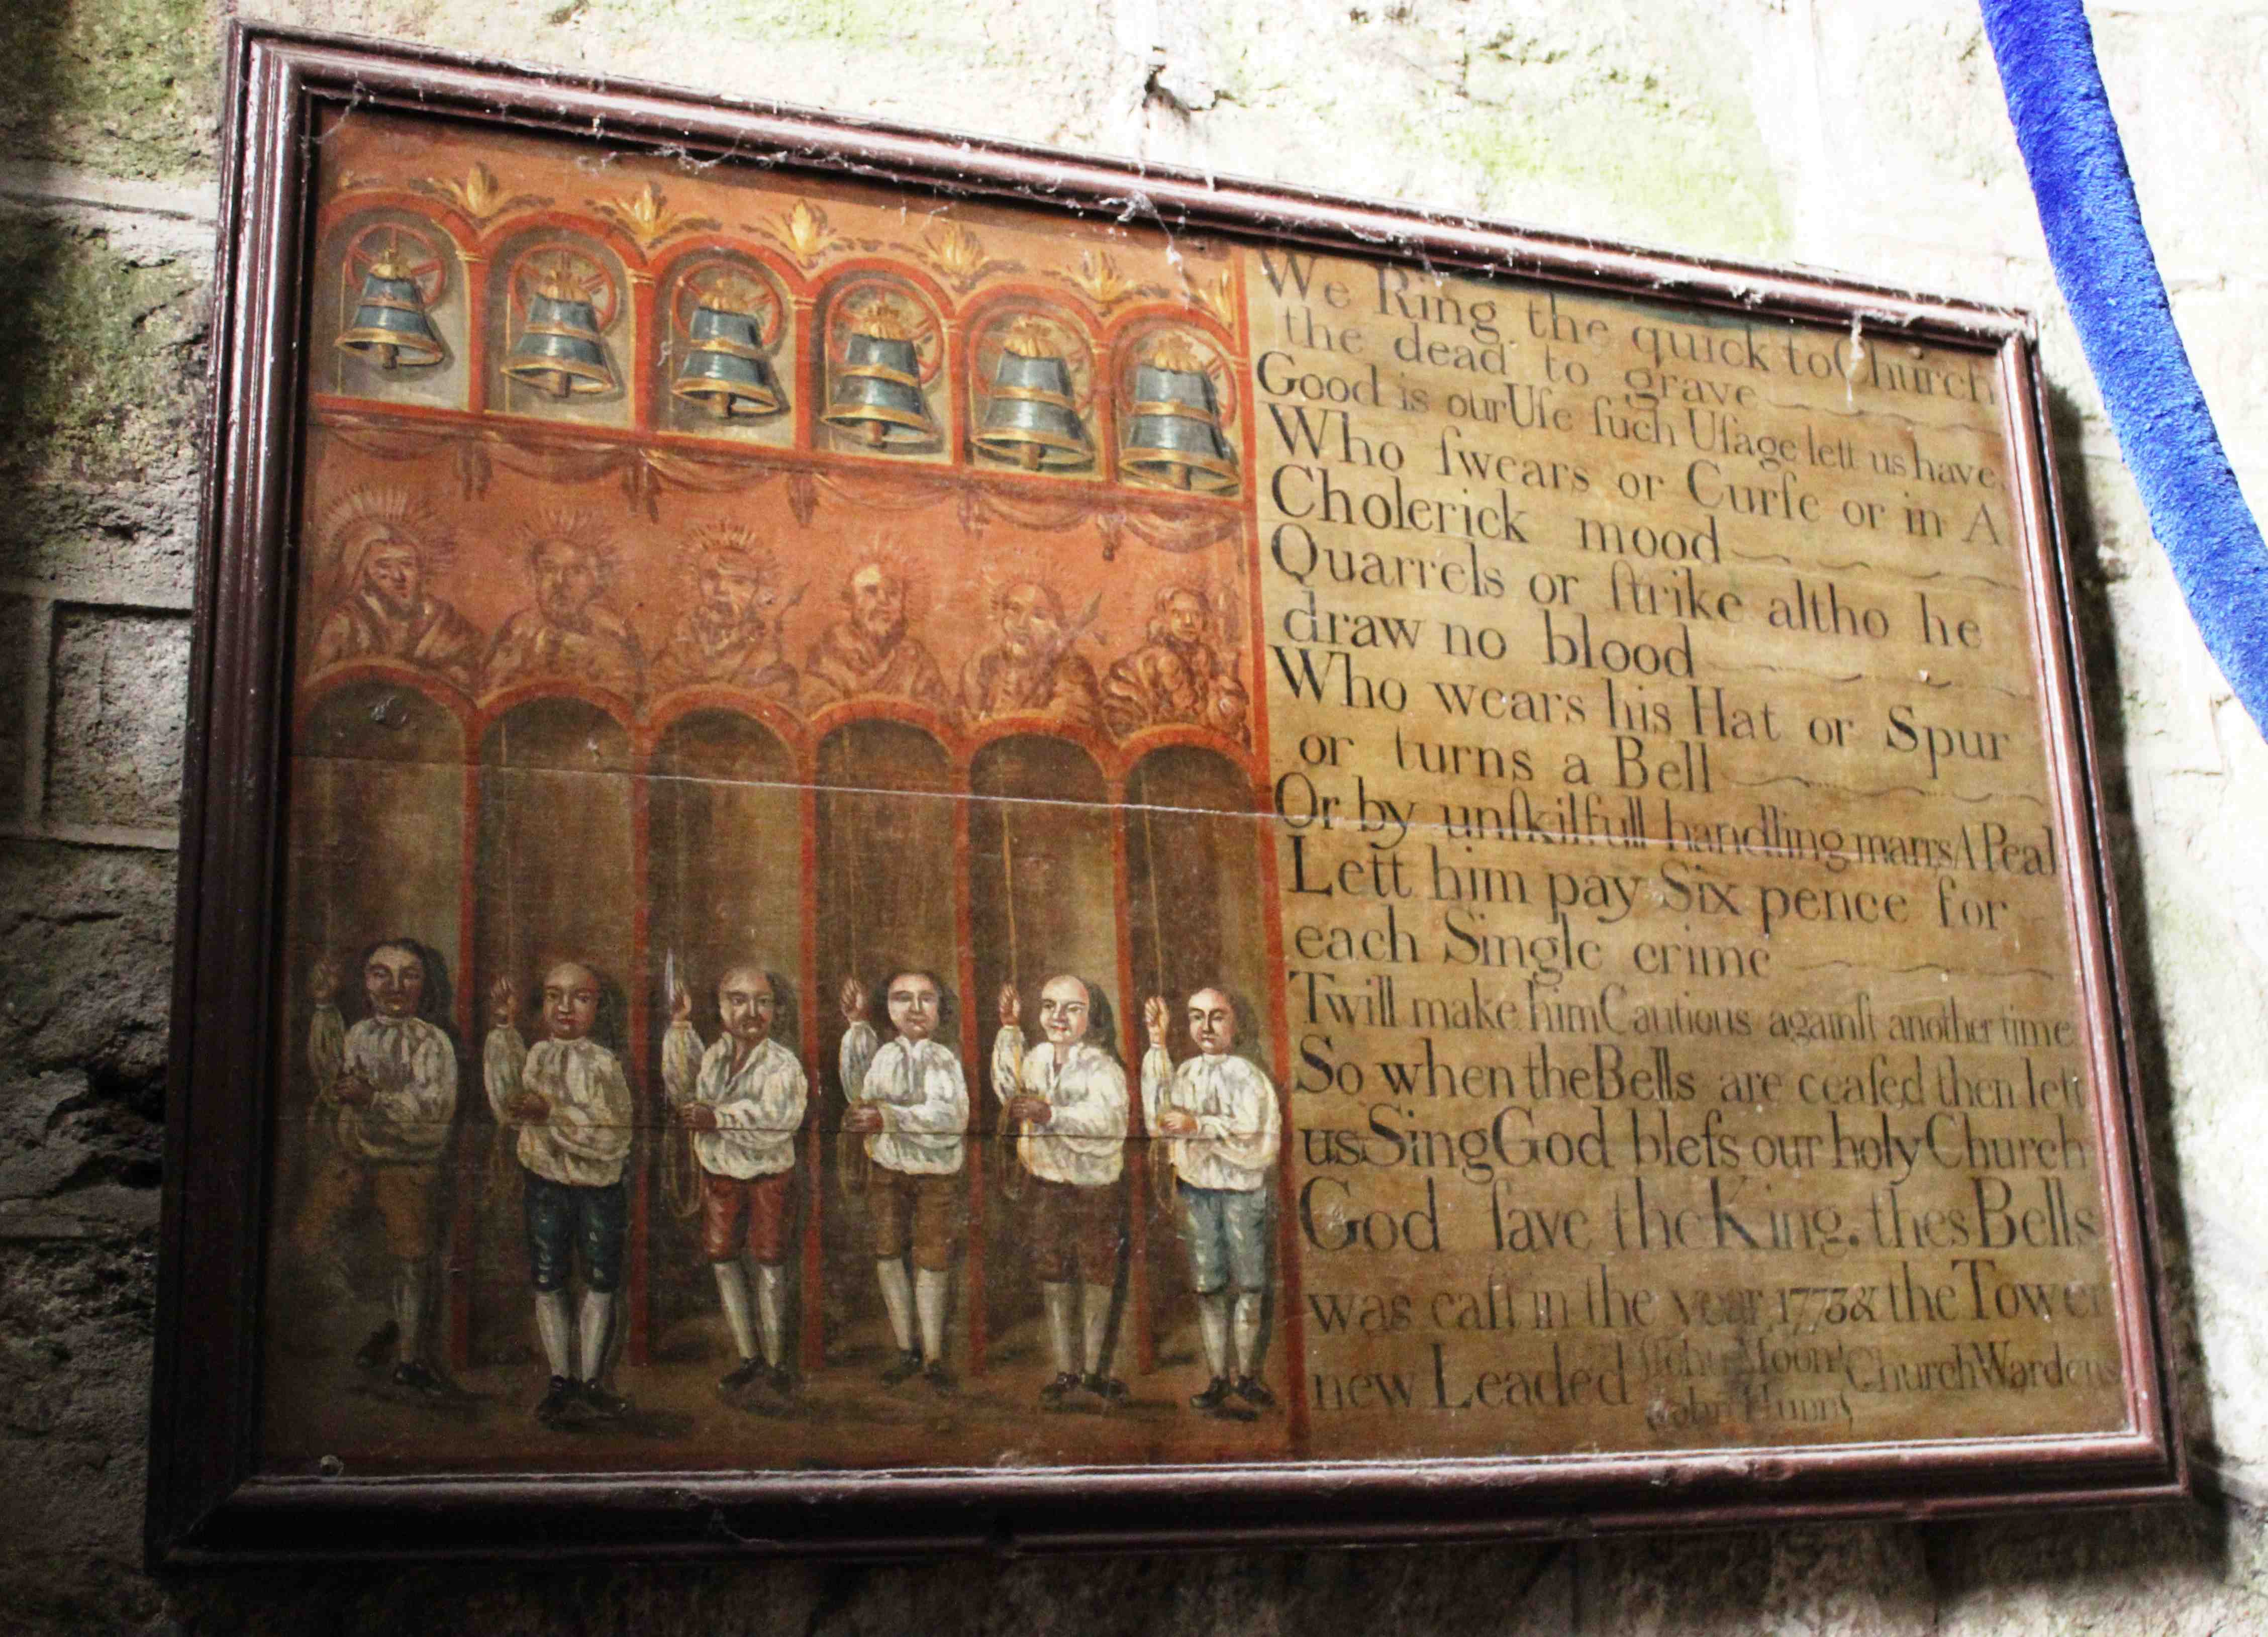 We Ring the quick to Church
the dead to grave
Good is our Uſe ſuch Uſage lett us have
Who ſwears or Curſe or in A
Cholerick mood
Quarrels or ſtrike altho he
draw no blood
Who wears his Hat or Spur
or turns a Bell
Or by unſkilfull handling marrs A Peal
Lett him pay Six pence for
each Single crime
Twill make him Cautious againſt another time
So when the Bells are ceaſed then lett
us Sing God bleſs our holy Church
God ſave the King. thes Bells
was caſt in the year 1773 & the Tower
new Leaded John Moon Church Wardens
John Hunn